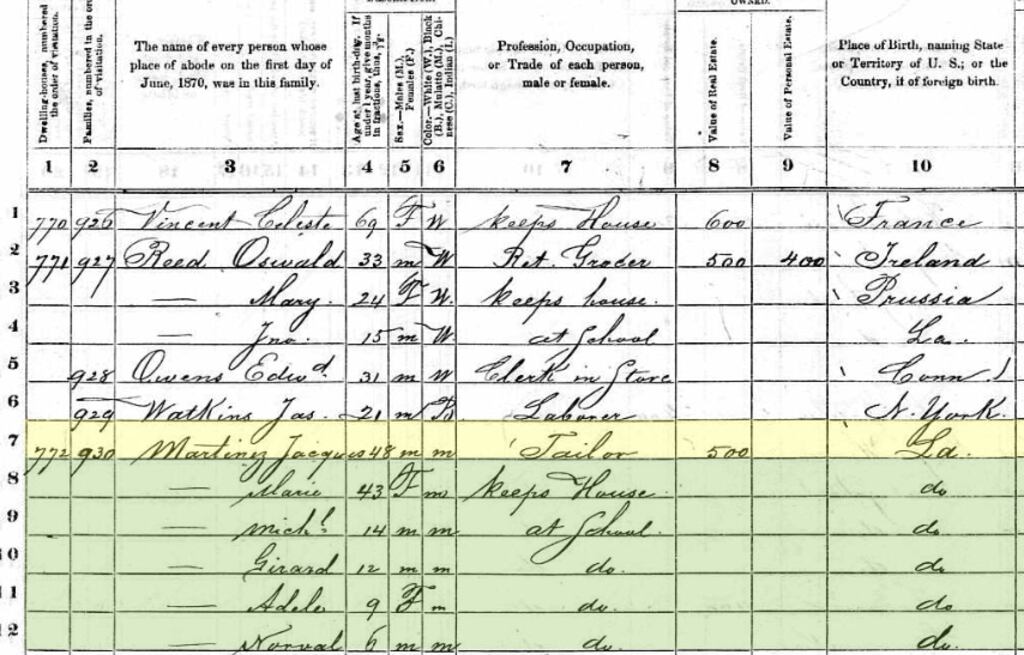 OWNED.
Dwelling-houses, numbered in the order of visitation.
Families, numbered in the order of visitation.
The name of every person whose place of abode on the first day of June, 1870, was in this family.
Age at last birth-day. If under 1 year, give months in fractions, thus,
Sex.—Males (M.), Females (F.)
Color.—White (W.), Black (B.), Mulatto (M.), Chinese (C.), Indian (I.)
Profession, Occupation, or Trade of each person, male or female.
Value of Real Estate.
Value of Personal Estate.
Place of Birth, naming State or Territory of U. S.; or the Country, if of foreign birth.
1 2 3 4 5 6 7 8 9 10
1 770 926 Vincent Celeste 69 F W keeps House 600 France
2 771 927 Reed Oswald 33 m W Ret. Grocer 500 400 Ireland
3 — Mary. 24 F W. keeps house. Prussia
4 — Jno. 15 m W. at School La.
5 928 Owens Edwd. 31 m W Clerk in Store Conn
6 929 Watkins Jas. 21 m B Laborer N. York.
7 772 930 Martinez Jacques 48 m m Tailor 500 La.
8 — Marie 43 F m keeps House. do
9 — Michl 14 m m at School. do
10 — Girard 12 m m do. do
11 — Adele 9 F m do. do
12 — Norval 6 m m do. do.